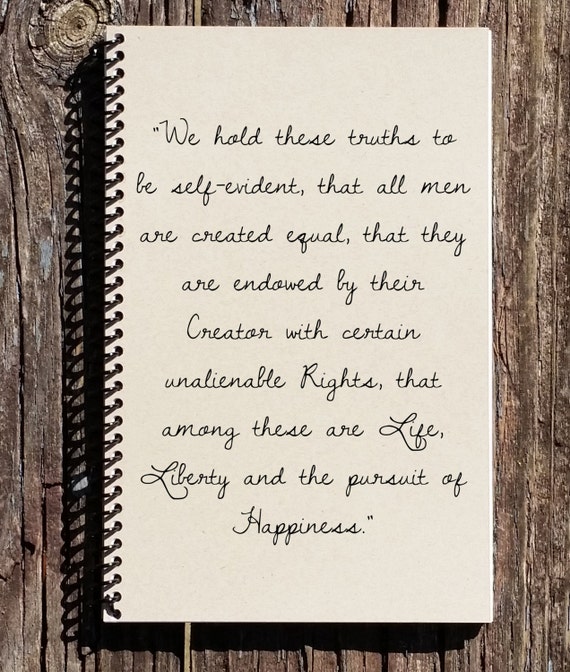 "We hold these truths to
be self-evident, that all men
are created equal, that they
are endowed by their
Creator with certain
unalienable Rights, that
among these are Life,
Liberty and the pursuit of
Happiness."